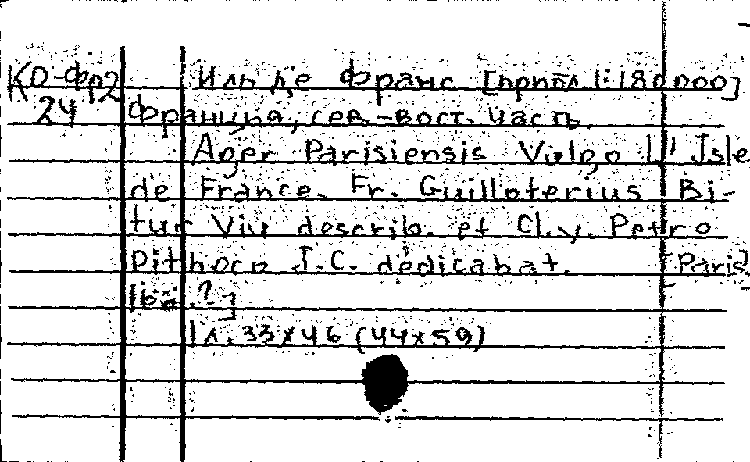 КО-Фр2 Иль де Франс [прибл 1:180000]
24 Франция, сев.-вост. часть.
Ager Parisiensis Vulgo L' Isle
de France. Fr. Guilloterius Bi-
tur Viv describ. et Cl.v. Petro
Pithoeo J.C. dedicabat. [Paris
?]
1 л. 33x46 (44x59)